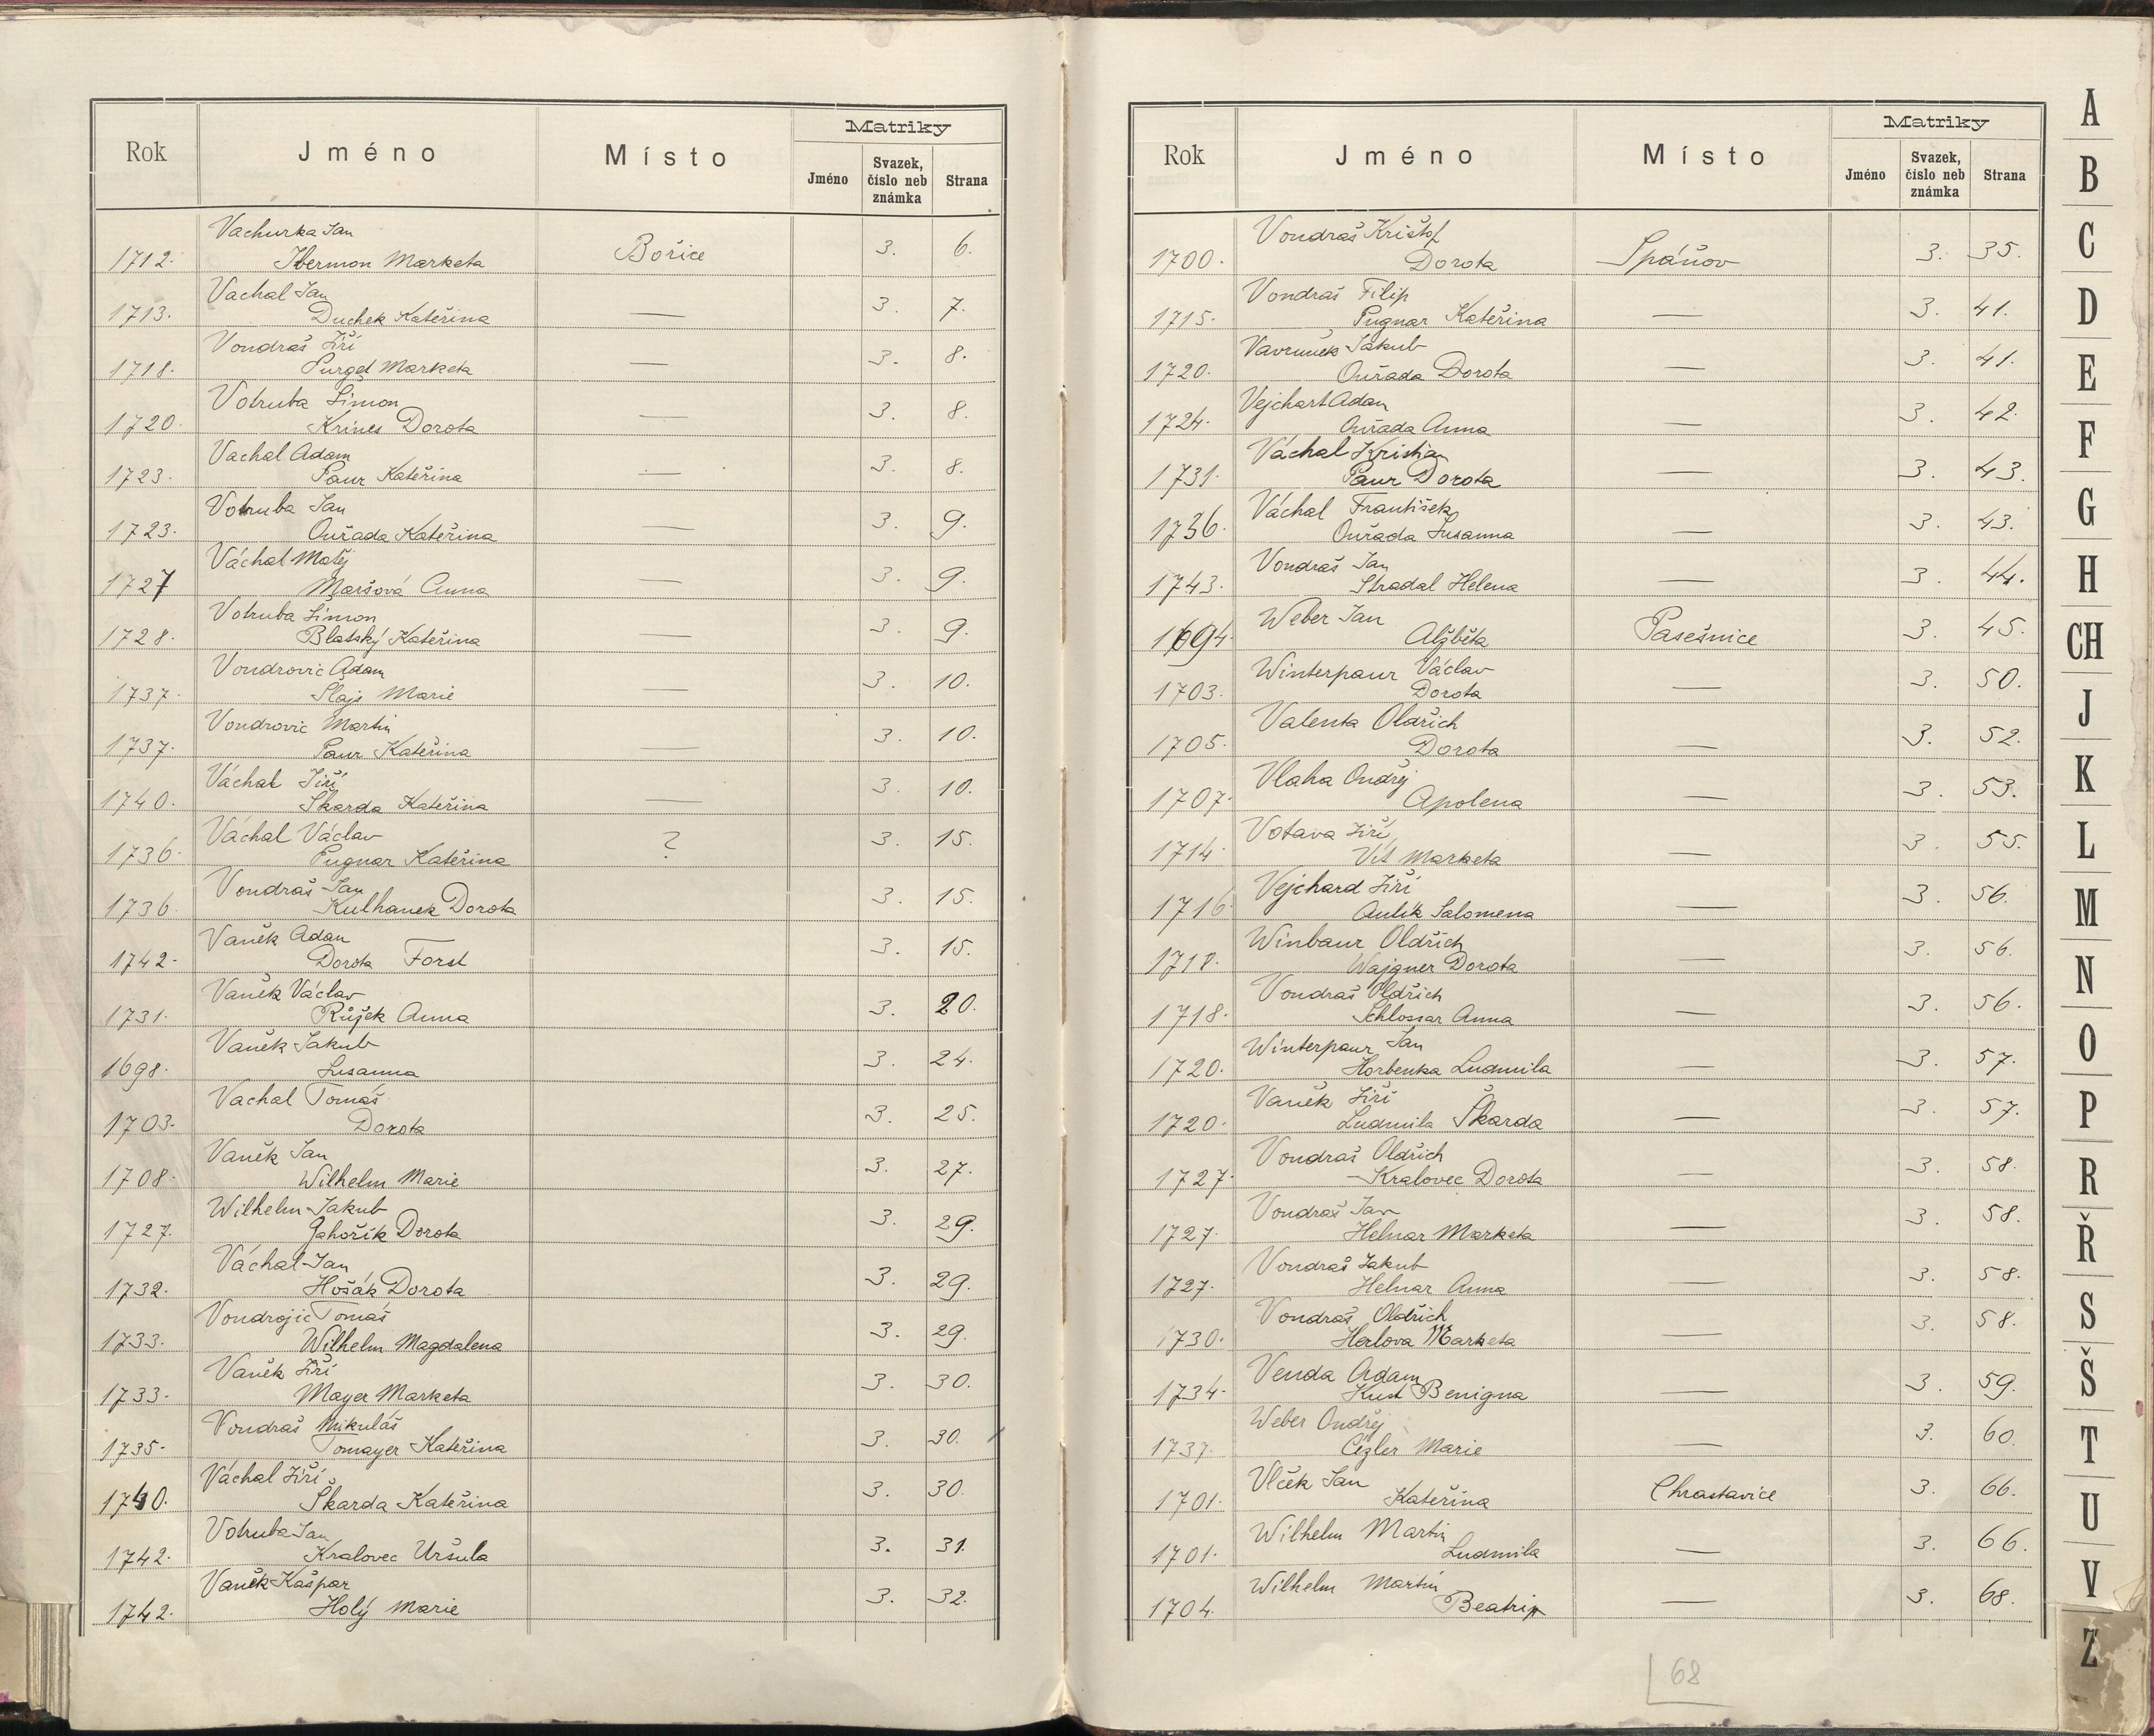 Rok Jméno Místo Matriky
Jméno Svazek, číslo neb známka Strana
Vachurka Jan
1712. Marketa Bořice 3. 6.
Vachal Jan
1713. Duchek Kateřina — 3. 7.
Vondraš Jiří
1718. Purgel Marketa — 3. 8.
Votruba Šimon
1720. Krines Dorota — 3. 8.
Vachal Adam
1723. Paur Kateřina — 3. 8.
Votruba Jan
1723. Ouřada Kateřina — 3. 9.
Váchal Matěj
1727 Maršová Anna — 3. 9.
Votruba Šimon
1728. Blatský Kateřina — 3. 9.
Vondrovic Adam
1737. Šlajs Marie — 3. 10.
Vondrovic Martin
1737. Paur Kateřina — 3. 10.
Váchal Jiří
1740. Škarda Kateřina — 3. 10.
Váchal Václav
1736. Pugnar Kateřina ? 3. 15.
Vondraš Jan
1736. Kulhanek Dorota 3. 15.
Vaněk Adam
1742. Dorota Forst 3. 15.
Vaněk Václav
1731. Růžek Anna 3. 20.
Vaněk Jakub
1698. Susanna 3. 24.
Vachal Tomáš
1703. Dorota 3. 25.
Vaněk Jan
1708. Wilhelm Marie 3. 27.
Wilhelm Jakub
1727. Dorota 3. 29.
Váchal Jan
1732. Hošák Dorota 3. 29.
Vondrojic Tomáš
1733. Wilhelm Magdalena 3. 29.
Vaněk Jiří
1733. Mayer Marketa 3. 30.
Vondraš Mikuláš
1735. Tomayer Kateřina 3. 30.
Váchal Jiří
1740. Škarda Kateřina 3. 30.
Votruba Jan
1742. Kralovec Uršula 3. 31.
Vaněk Kašpar
1742. Holý Marie 3. 32.
Rok Jméno Místo Matriky
Jméno Svazek, číslo neb známka Strana
Vondraš Krištof
1700. Dorota Spáňov 3. 35.
Vondraš Filip
1715. Pugnar Kateřina — 3. 41.
Vavruněk Jakub
1720. Ouřada Dorota — 3. 41.
Vejchart Adam
1724. Ouřada Anna — 3. 42.
Váchal Kristian
1731. Paur Dorota — 3. 43.
Váchal František
1736. Ouřada Susanna — 3. 43.
Vondraš Jan
1743. Stradal Helena — 3. 44.
Weber Jan
1694. Alžběta Pasešnice 3. 45.
Winterpaur Václav
1703. Dorota — 3. 50.
Valenta Oldřich
1705. Dorota — 3. 52.
Vlaha Ondřej
1707. Apolena — 3. 53.
Votava Jiří
1714. Vít Marketa — 3. 55.
Vejchard Jiří
1716. Aulik Salomena — 3. 56.
Winbaur Oldřich
1718. Wajgner Dorota — 3. 56.
Vondraš Oldřich
1718. Schlossar Anna — 3. 56.
Winterpaur Jan
1720. Horbenka Ludmila — 3. 57.
Vaněk Jiří
1720. Ludmila Škarda — 3. 57.
Vondraš Oldřich
1727. Kralovec Dorota — 3. 58.
Vondraš Jan
1727. Helnar Marketa — 3. 58.
Vondraš Jakub
1727. Helnar Anna — 3. 58.
Vondraš Oldřich
1730. Herlova Marketa — 3. 58.
Venda Adam
1734. Kust Benigna — 3. 59.
Weber Ondřej
1737. Cézler Marie — 3. 60.
Vlček Jan
1701. Kateřina Chrastavice 3. 66.
Wilhelm Martin
1701. Ludmila — 3. 66.
Wilhelm Martin
1704. Beatrix — 3. 68.
68
A
B
C
D
E
F
G
H
CH
J
K
L
M
N
O
P
R
Ř
S
Š
T
U
V
Z